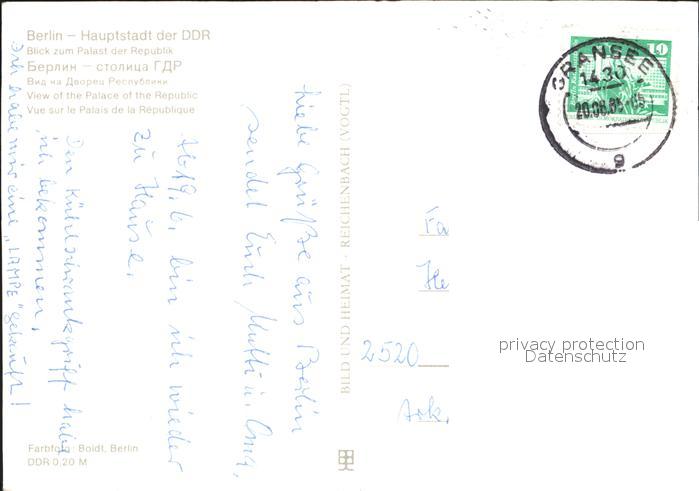 Berlin – Hauptstadt der DDR
Blick zum Palast der Republik
Берлин – столица ГДР
Вид на Дворец Республики
View of the Palace of the Republic
Vue sur le Palais de la République
Liebe Grüße aus Berlin
sendet Euch Mutti u. Oma,
Ab 19.6. bin ich wieder
zu Hause.
Den Kühlschrankgriff habe
ich bekommen,
Ich habe mir eine „LAMPE" gekauft!
Farbfoto: Boldt, Berlin
DDR 0,20 M
BILD UND HEIMAT · REICHENBACH (VOGTL)
GRANSEE
14.30
9
10
Fa
He
2520
privacy protection
Datenschutz